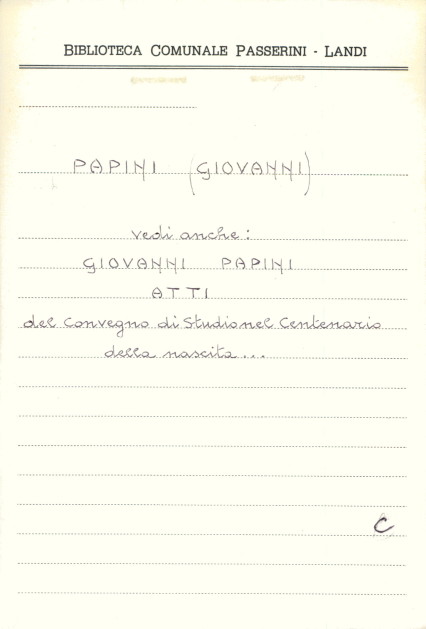 BIBLIOTECA COMUNALE PASSERINI - LANDI
PAPINI (GIOVANNI)
vedi anche:
GIOVANNI PAPINI
ATTI
del Convegno di Studio nel Centenario
della nascita...
C